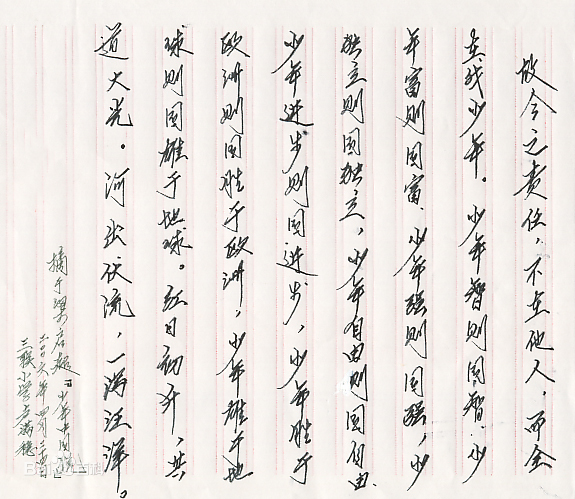 故今之责任，不在他人，而全
在我少年。少年智则国智、少
年富则国富、少年强则国强，少
独立则国独立，少年自由则国自由.
少年进步则国进步，少年胜于
欧洲则国胜于欧洲，少年雄于地
球则国雄于地球。红日初升，其
道大光。河出伏流，一泻汪洋。
摘于梁启超「少年中国说」
二00六年四月
三联小学